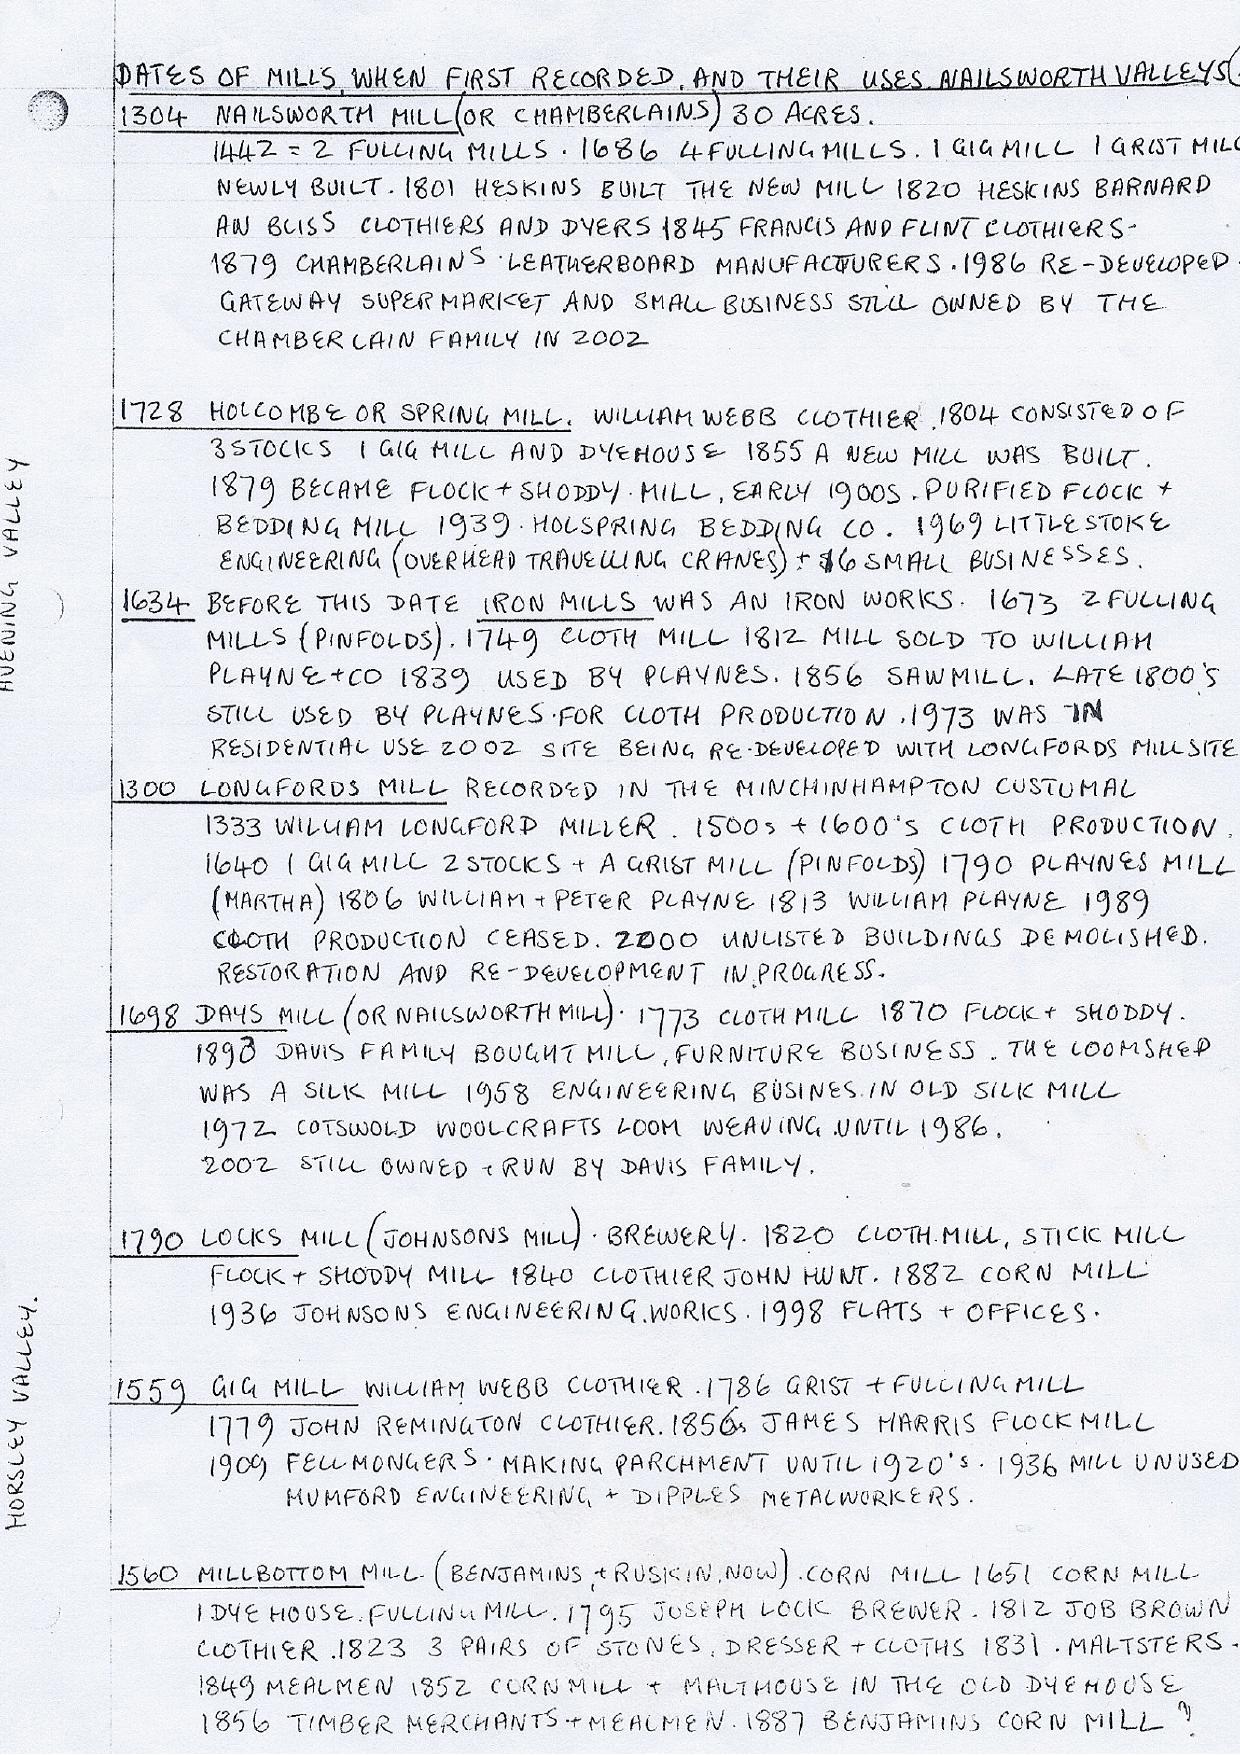 DATES OF MILLS, WHEN FIRST RECORDED, AND THEIR USES. NAILSWORTH VALLEYS(
1304 NAILSWORTH MILL (OR CHAMBERLAINS) 30 ACRES.
1442 = 2 FULLING MILLS. 1686 4 FULLING MILLS. 1 GIG MILL 1 GRIST MILL
NEWLY BUILT. 1801 HESKINS BUILT THE NEW MILL 1820 HESKINS BARNARD
AN BLISS CLOTHIERS AND DYERS 1845 FRANCIS AND FLINT CLOTHIERS-
1879 CHAMBERLAINS. LEATHERBOARD MANUFACTURERS. 1986 RE-DEVELOPED-
GATEWAY SUPERMARKET AND SMALL BUSINESS STILL OWNED BY THE
CHAMBERLAIN FAMILY IN 2002
AVENING VALLEY
1728 HOLCOMBE OR SPRING MILL. WILLIAM WEBB CLOTHIER. 1804 CONSISTED OF
3 STOCKS 1 GIG MILL AND DYEHOUSE 1855 A NEW MILL WAS BUILT.
1879 BECAME FLOCK + SHODDY. MILL, EARLY 1900S. PURIFIED FLOCK +
BEDDING MILL 1939. HOLSPRING BEDDING CO. 1969 LITTLESTOKE
ENGINEERING (OVERHEAD TRAVELLING CRANES) + 6 SMALL BUSINESSES.
1634 BEFORE THIS DATE IRON MILLS WAS AN IRON WORKS. 1673 2 FULLING
MILLS (PINFOLDS). 1749 CLOTH MILL 1812 MILL SOLD TO WILLIAM
PLAYNE + CO 1839 USED BY PLAYNES. 1856 SAWMILL. LATE 1800'S
STILL USED BY PLAYNES. FOR CLOTH PRODUCTION. 1973 WAS IN
RESIDENTIAL USE 2002 SITE BEING RE-DEVELOPED WITH LONGFORDS MILL SITE
1300 LONGFORDS MILL RECORDED IN THE MINCHINHAMPTON CUSTUMAL
1333 WILLIAM LONGFORD MILLER. 1500s + 1600's CLOTH PRODUCTION.
1640 1 GIG MILL 2 STOCKS + A GRIST MILL (PINFOLDS) 1790 PLAYNES MILL
(MARTHA) 1806 WILLIAM + PETER PLAYNE 1813 WILLIAM PLAYNE 1989
CLOTH PRODUCTION CEASED. 2000 UNLISTED BUILDINGS DEMOLISHED.
RESTORATION AND RE-DEVELOPMENT IN PROGRESS.
1698 DAYS MILL (OR NAILSWORTH MILL). 1773 CLOTH MILL 1870 FLOCK + SHODDY.
1893 DAVIS FAMILY BOUGHT MILL, FURNITURE BUSINESS. THE LOOMSHED
WAS A SILK MILL 1958 ENGINEERING BUSINES. IN OLD SILK MILL
1972 COTSWOLD WOOLCRAFTS LOOM WEAVING. UNTIL 1986.
2002 STILL OWNED + RUN BY DAVIS FAMILY.
HORSLEY VALLEY.
1790 LOCKS MILL (JOHNSONS MILL). BREWERY. 1820 CLOTH MILL, STICK MILL
FLOCK + SHODDY MILL 1840 CLOTHIER JOHN HUNT. 1882 CORN MILL
1936 JOHNSONS ENGINEERING. WORKS. 1998 FLATS + OFFICES.
1559 GIG MILL WILLIAM WEBB CLOTHIER. 1786 GRIST + FULLING MILL
1779 JOHN REMINGTON CLOTHIER. 1856s JAMES HARRIS FLOCK MILL
1909 FELLMONGERS. MAKING PARCHMENT UNTIL 1920's. 1936 MILL UNUSED
MUMFORD ENGINEERING + DIPPLES METALWORKERS.
1560 MILLBOTTOM MILL. (BENJAMINS, + RUSKIN, NOW). CORN MILL 1651 CORN MILL
1 DYE HOUSE. FULLING MILL. 1795 JOSEPH LOCK BREWER. 1812 JOB BROWN
CLOTHIER. 1823 3 PAIRS OF STONES, DRESSER + CLOTHS 1831. MALTSTERS-
1849 MEALMEN 1852 CORN MILL + MALTHOUSE IN THE OLD DYEHOUSE
1856 TIMBER MERCHANTS + MEALMEN. 1887 BENJAMINS CORN MILL ?